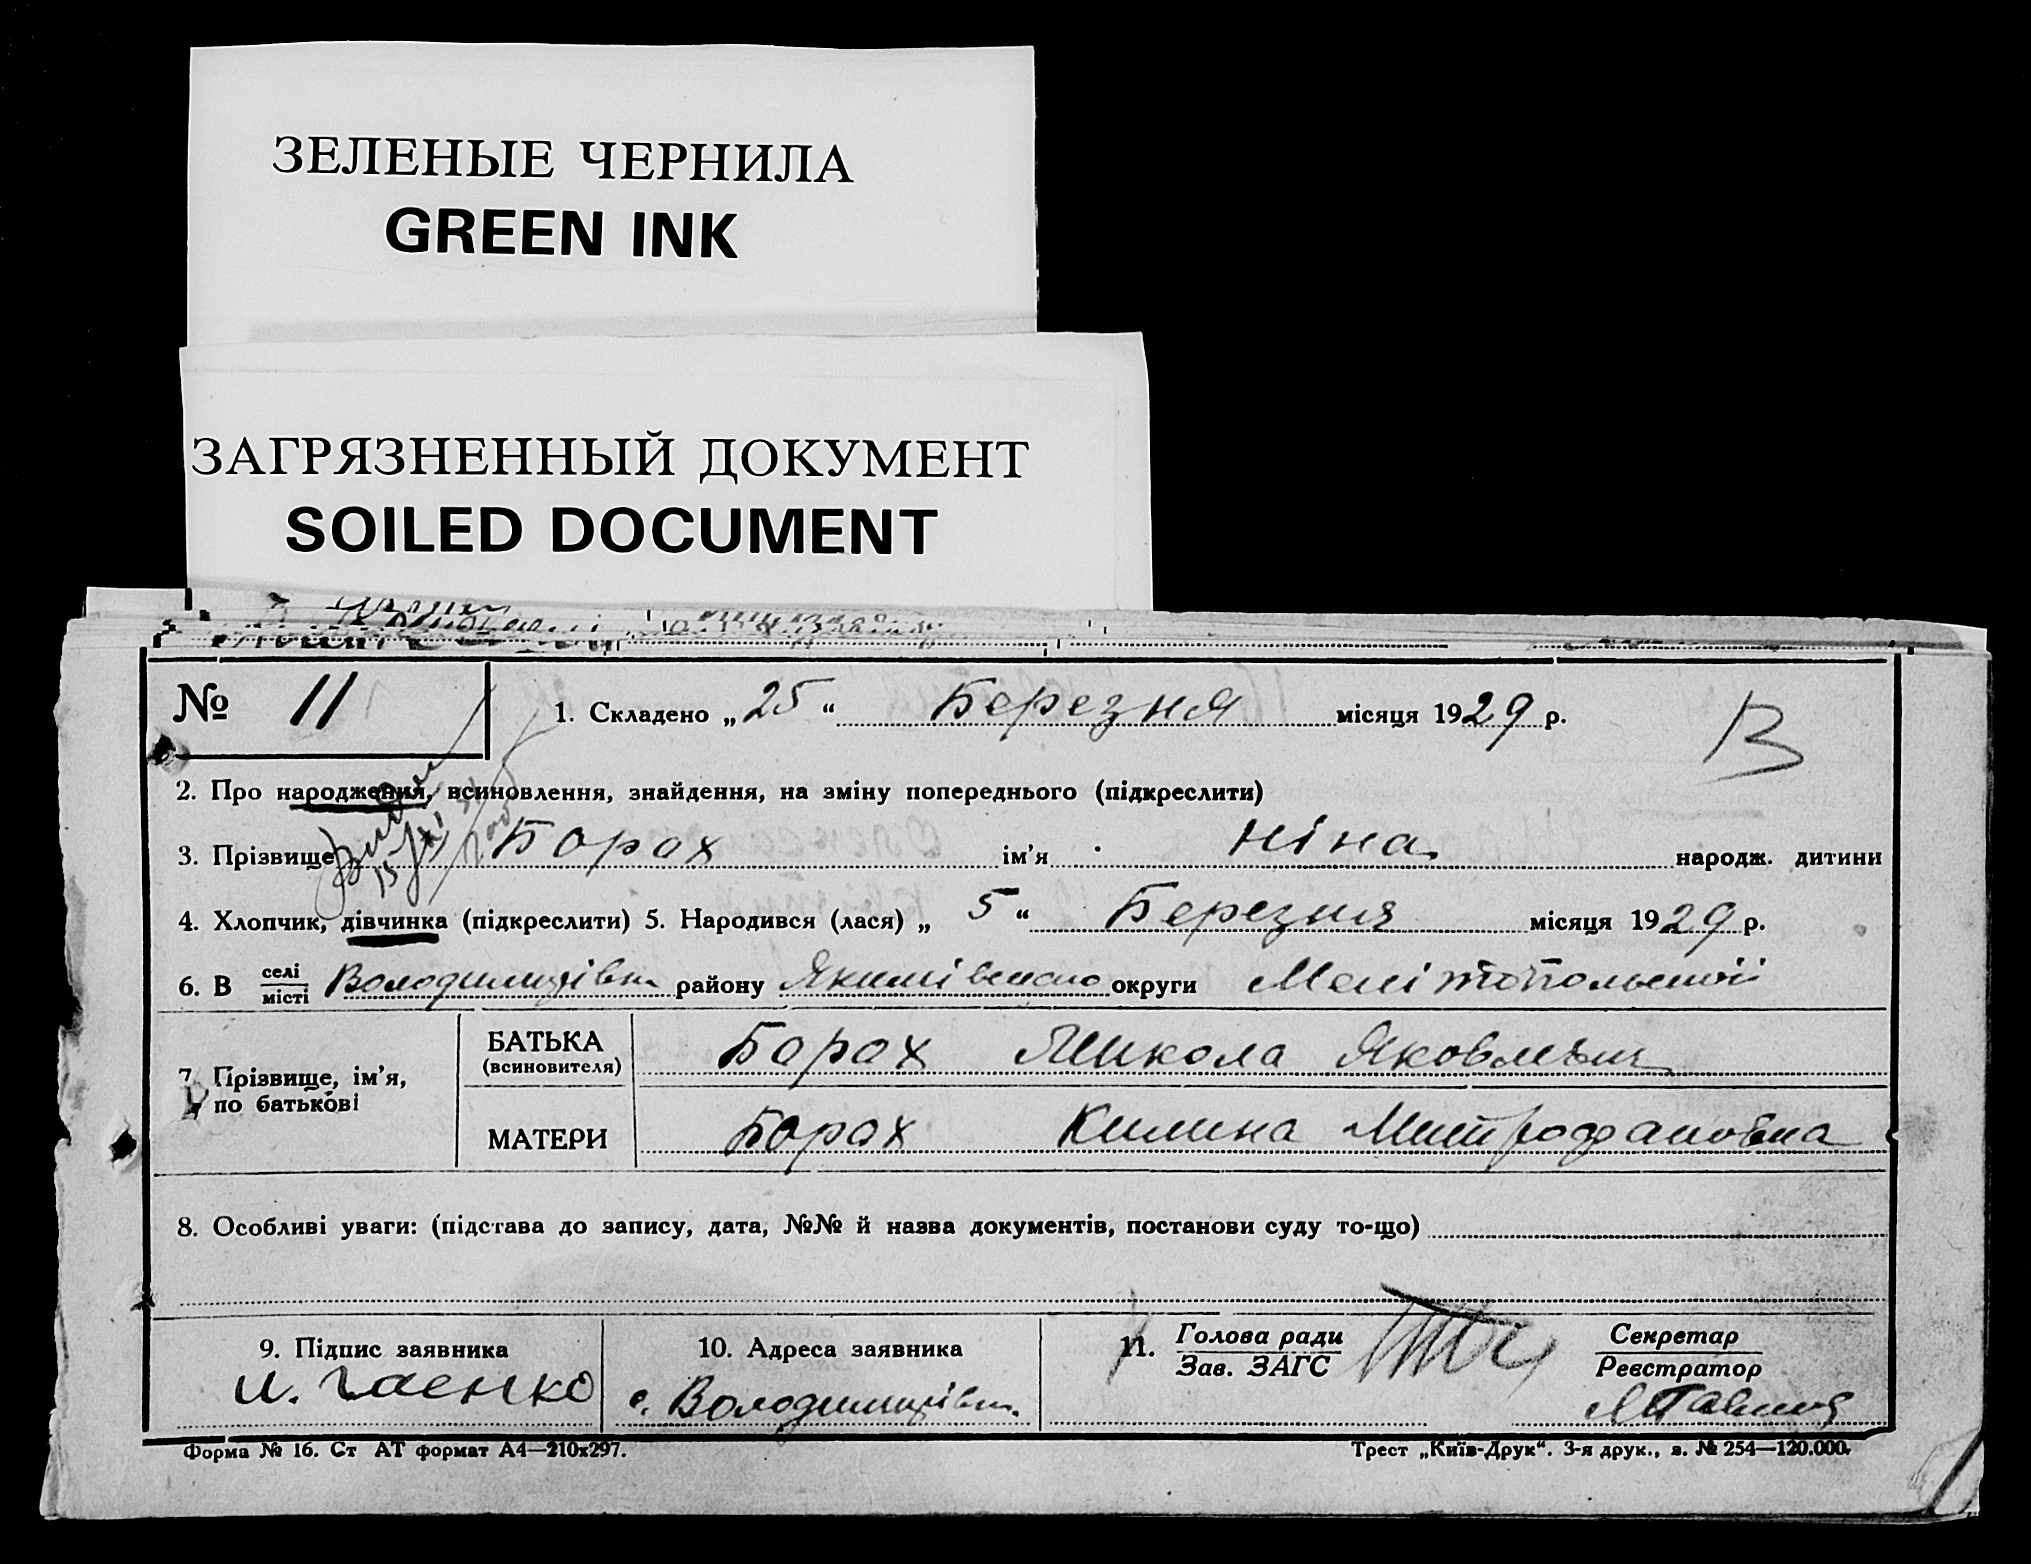 ЗЕЛЕНЫЕ ЧЕРНИЛА
GREEN INK
ЗАГРЯЗНЕННЫЙ ДОКУМЕНТ
SOILED DOCUMENT
№ 11
1. Складено „25“ Березня місяця 1929 р.
В
2. Про народження, всиновлення, знайдення, на зміну попереднього (підкреслити)
3. Прізвище Борох ім’я Ніна народж. дитини
4. Хлопчик, дівчинка (підкреслити) 5. Народився (лася) „ 5 “ Березня місяця 1929 р.
6. В селі/місті Володимирівка району Якимівсько округи Мелітопольской
7. Прізвище, ім’я, по батькові
БАТЬКА (всиновителя) Борох Микола Яковлевич
МАТЕРИ Борох Килина Митрофановна
8. Особливі уваги: (підстава до запису, дата, №№ й назва документів, постанови суду то-що)
9. Підпис заявника
10. Адреса заявника
11. Голова ради/Зав. ЗАГС
Секретар/Реєстратор
с. Володимирівка
Форма № 16. Ст АТ формат А4—210х297.
Трест „Київ-Друк“. 3-я друк., з. № 254—120.000.